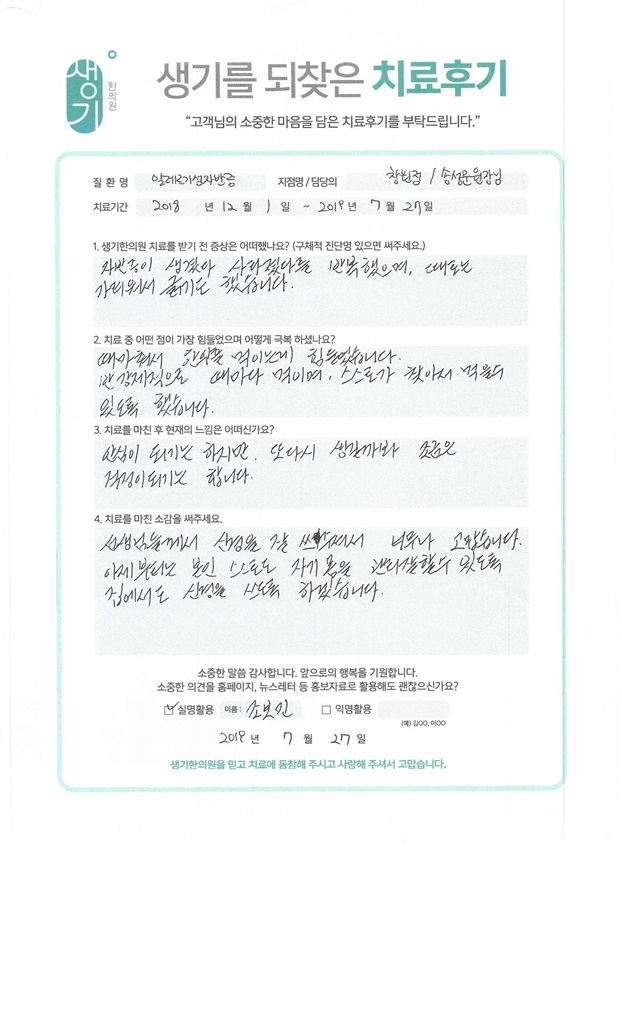 생기 한의원
생기를 되찾은 치료후기
“고객님의 소중한 마음을 담은 치료후기를 부탁드립니다.”
질 환 명 알레르기성자반증 지점명 / 담당의 창원점 / 송성문원장님
치료기간 2018 년 12 월 1 일 ~ 2019 년 7 월 27 일
1. 생기한의원 치료를 받기 전 증상은 어떠했나요? (구체적 진단명 있으면 써주세요.)
자반증이 생겼다 사라졌다를 반복했으며, 때로는
가려워서 긁기도 했습니다.
2. 치료 중 어떤 점이 가장 힘들었으며 어떻게 극복 하셨나요?
때마춰서 한약을 먹이는게 힘들었습니다.
반강제적으로 때마다 먹이며, 스스로가 찾아서 먹을수
있도록 했습니다.
3. 치료를 마친 후 현재의 느낌은 어떠신가요?
안심이 되기는 하지만, 또다시 생길까봐 조금은
걱정이되기는 합니다.
4. 치료를 마친 소감을 써주세요.
선생님들께서 신경을 잘 써주셔서 너무나 고맙습니다.
이제부터는 본인 스스로 자기 몸을 관리잘할수 있도록
집에서도 신경을 쓰도록 하겠습니다.
소중한 말씀 감사합니다. 앞으로의 행복을 기원합니다.
소중한 의견을 홈페이지, 뉴스레터 등 홍보자료로 활용해도 괜찮으신가요?
실명활용 이름 : 소보인 익명활용
(예) 김OO, 이OO
2019 년 7 월 27 일
생기한의원을 믿고 치료에 동참해 주시고 사랑해 주셔서 고맙습니다.